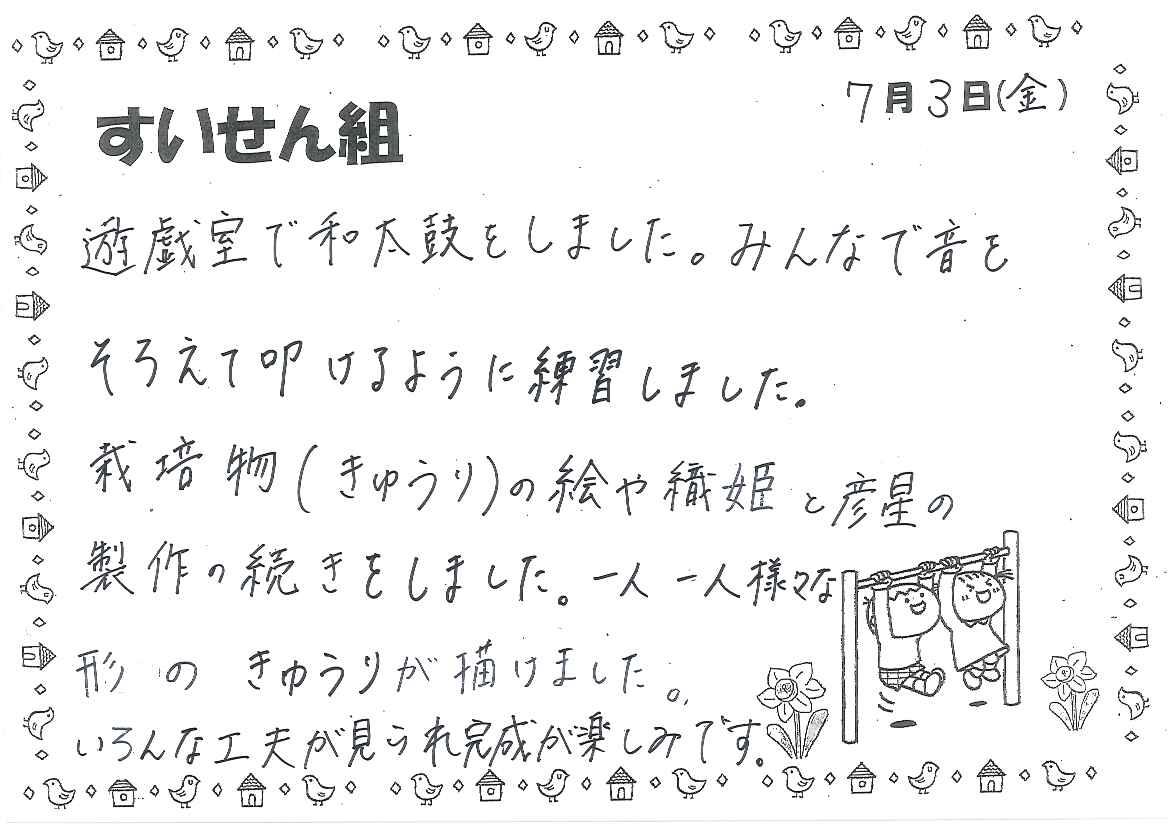 7月3日(金)
すいせん組
遊戯室で和太鼓をしました。みんなで音を
そろえて叩けるように練習しました。
栽培物(きゅうり)の絵や織姫と彦星の
製作の続きをしました。一人一人様々な
形のきゅうりが描けました。
いろんな工夫が見られ完成が楽しみです。